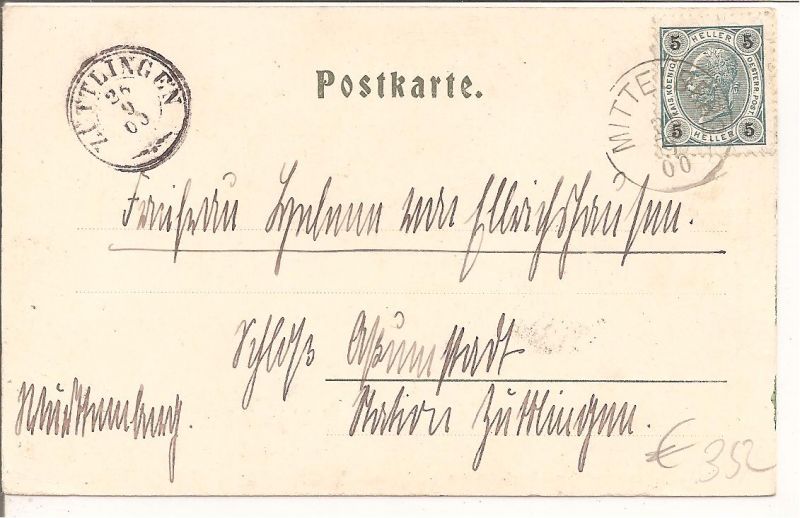 ZÜTTLINGEN
26
9
00
Postkarte.
5 HELLER 5
KAIS.KOENIGL. OESTERR.POST.
5 HELLER 5
MITTE
00
Freifrau von Ellrichshausen.
Schloß Assumstadt
Württemberg.
Station Züttlingen.
€ 352